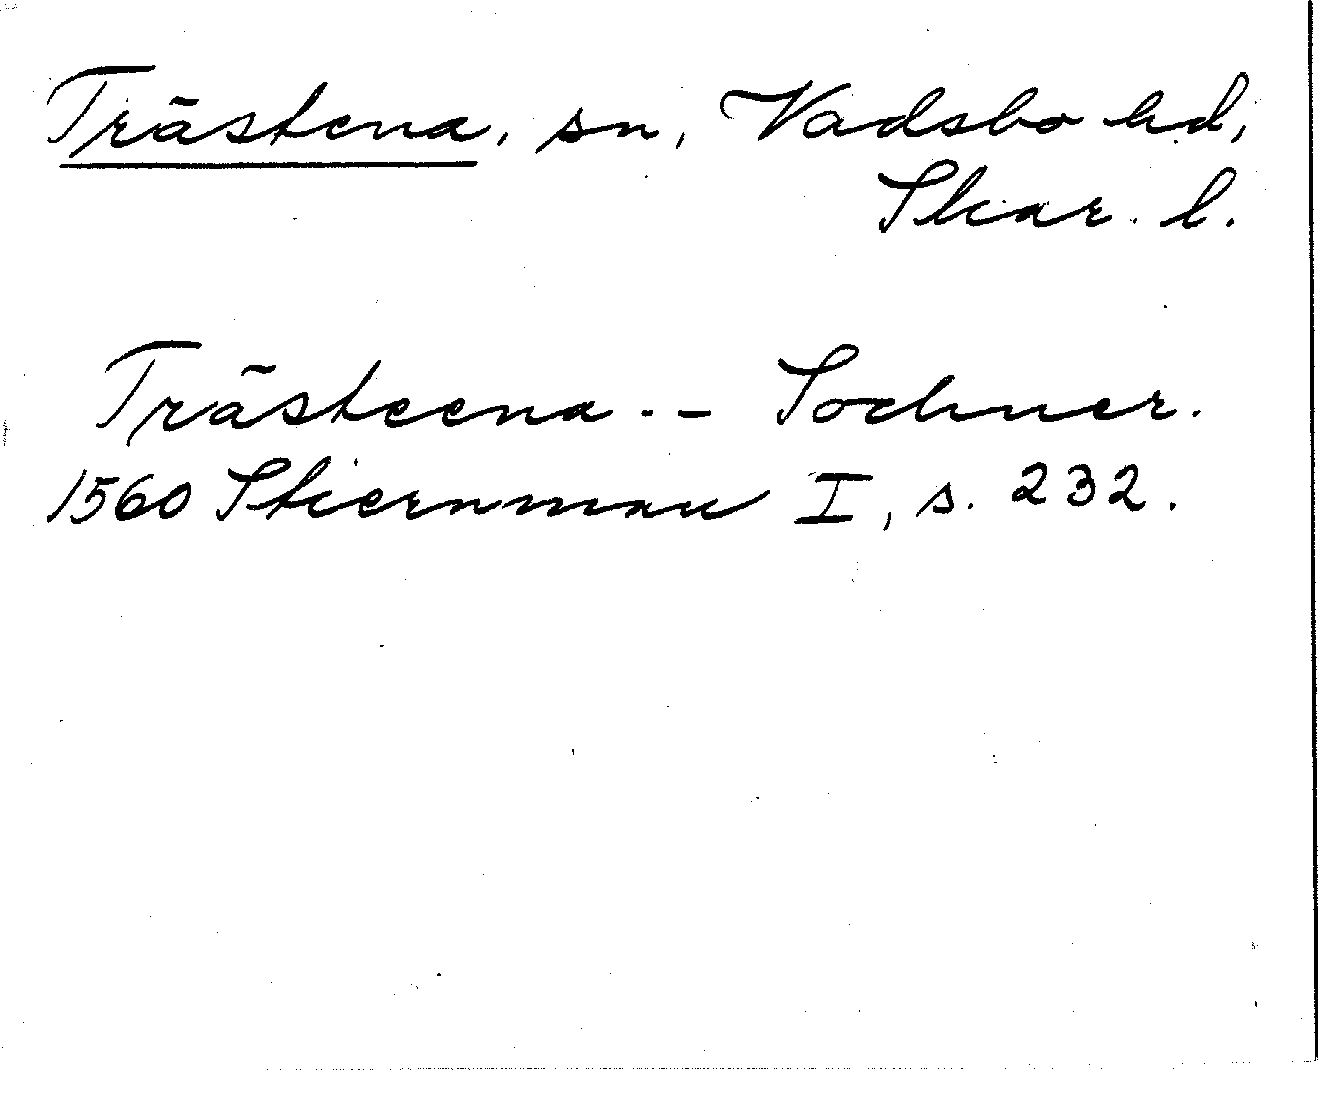 Trästena, sn, Vadsbo hd,
Skar. l.
Trästeena. - Sochner.
1560 Stiernman I, s. 232.